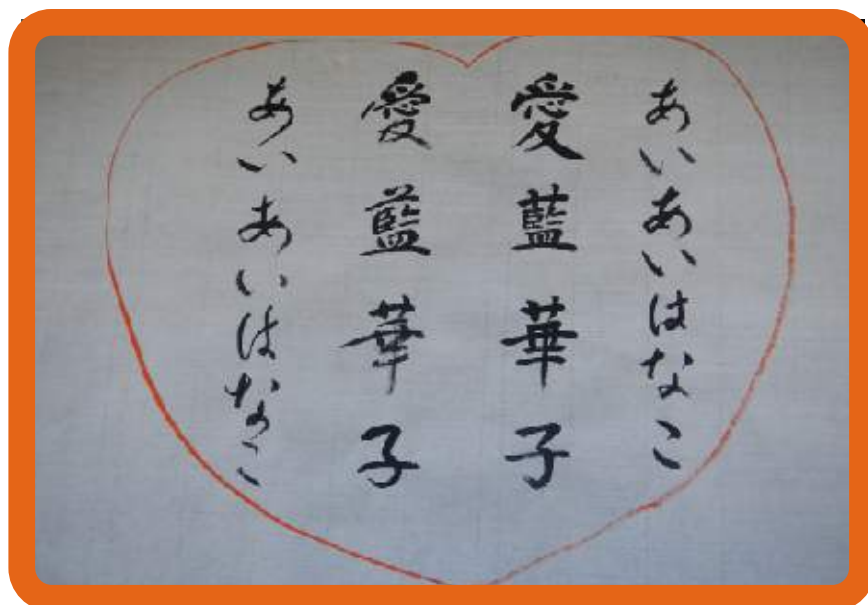 あいあいはなこ
愛藍華子
愛藍華子
あいあいはなこ